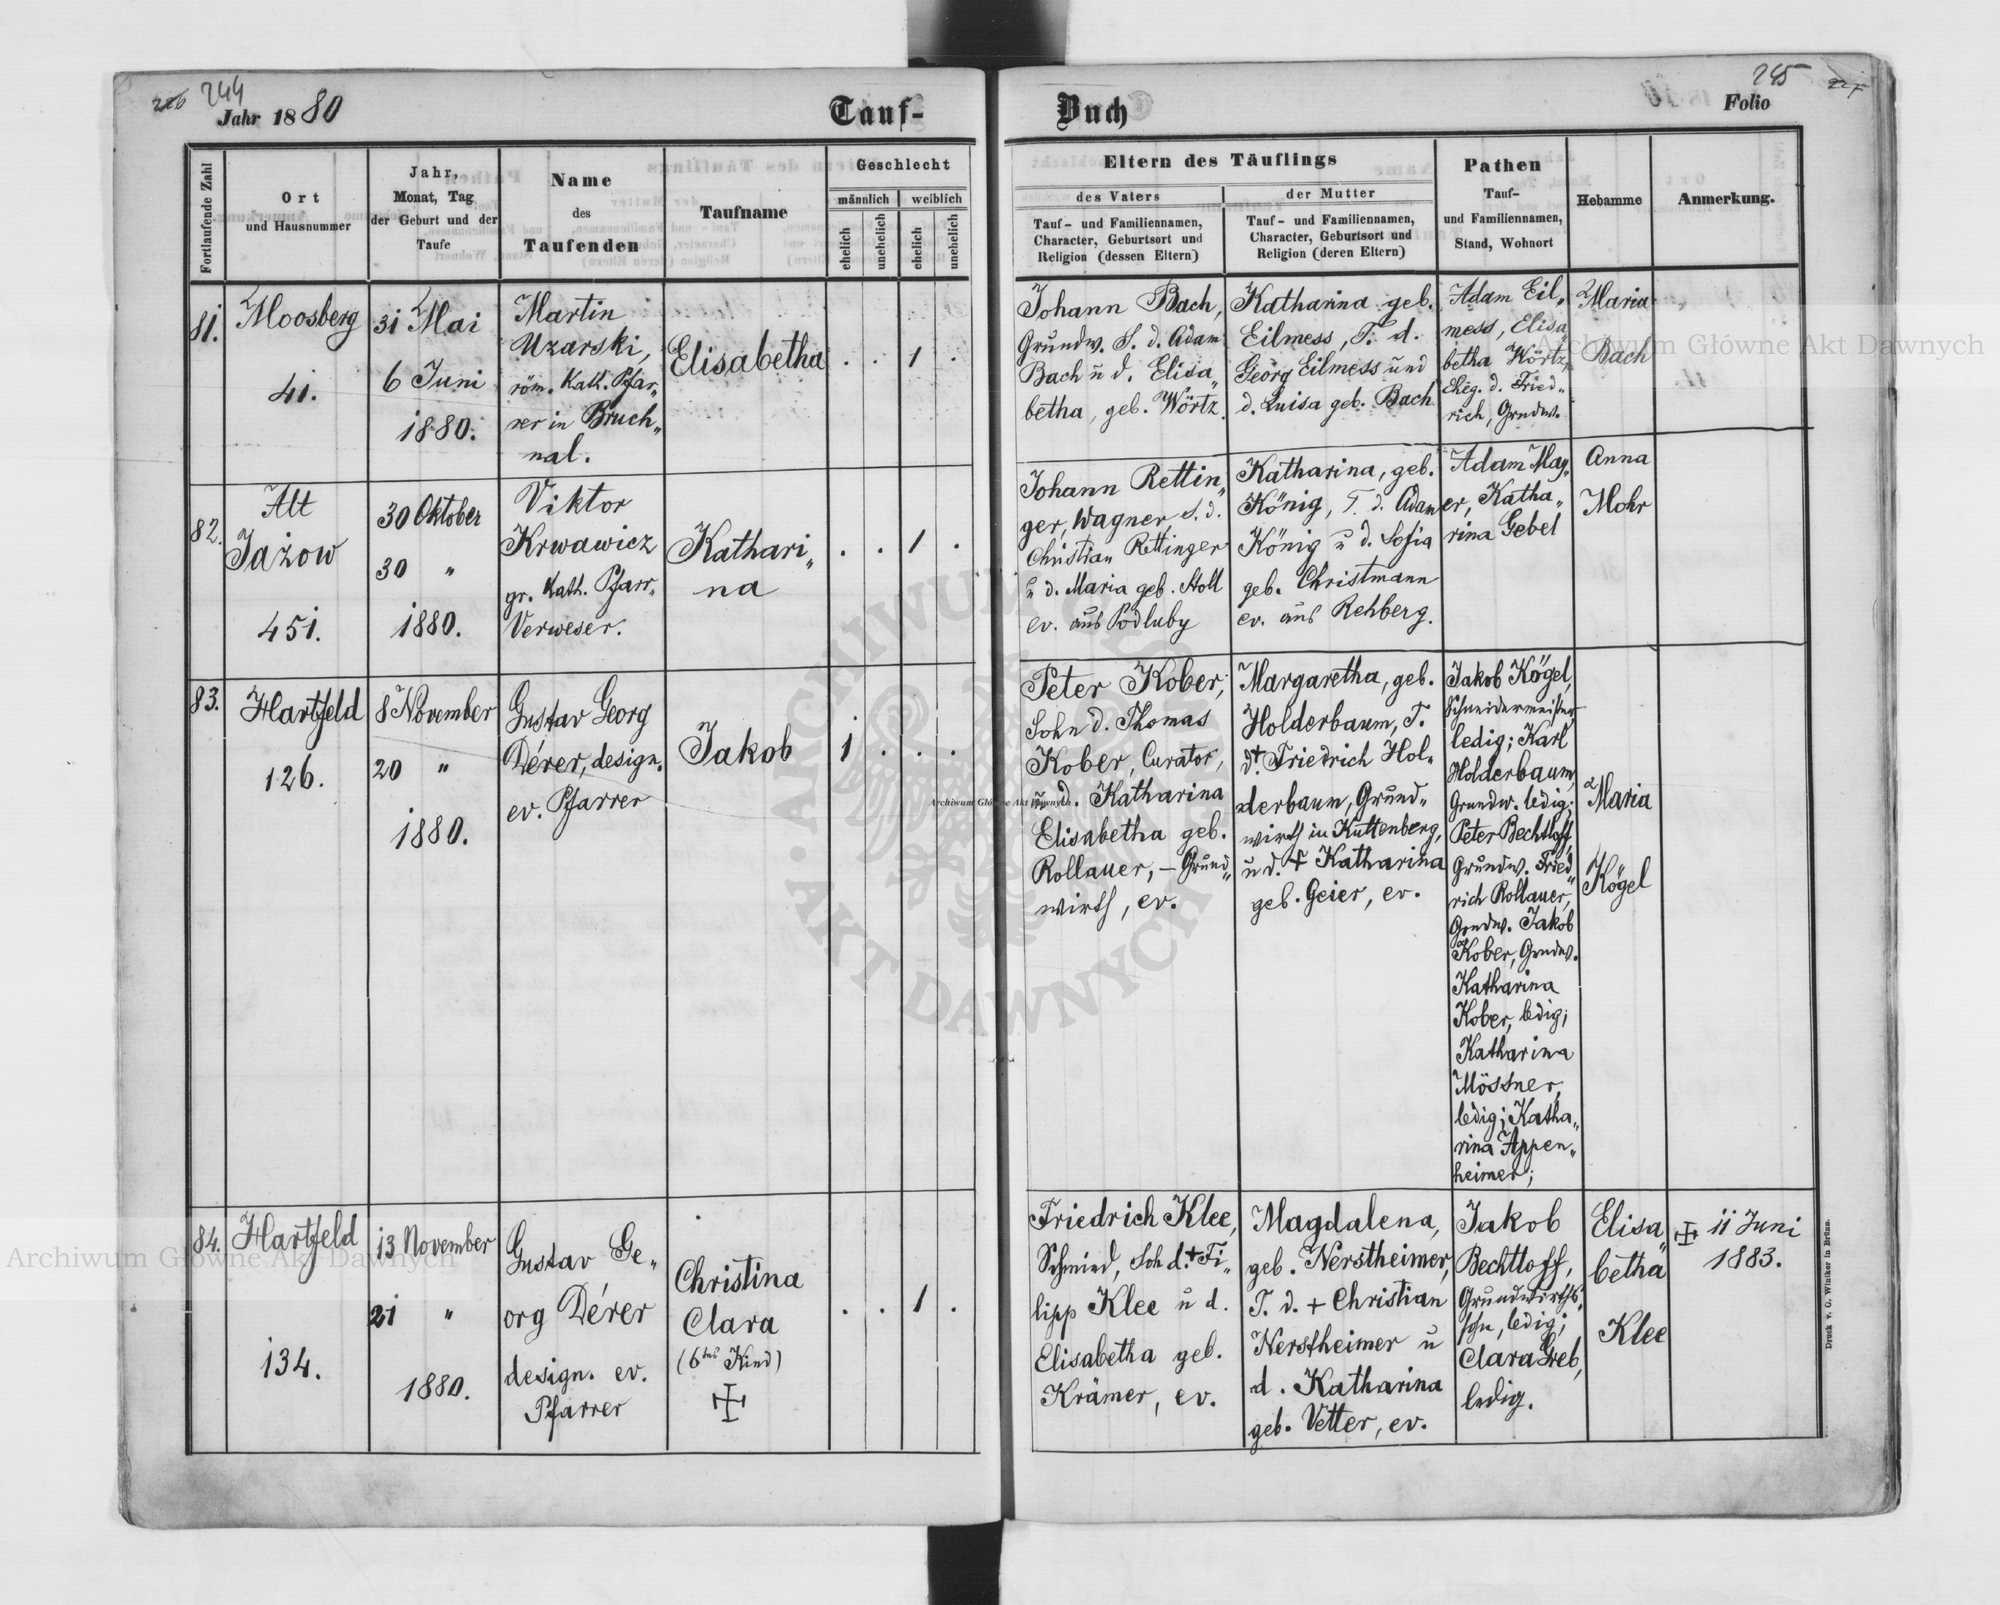 226 244
Jahr 1880
Tauf-
Buch
245 227
Folio
Fortlaufende Zahl
Ort
und Hausnummer
Jahr,
Monat, Tag
der Geburt und der
Taufe
Name
des
Taufenden
Taufname
Geschlecht
männlich
weiblich
ehelich
unehelich
ehelich
unehelich
Eltern des Täuflings
des Vaters
Tauf- und Familiennamen,
Character, Geburtsort und
Religion (dessen Eltern)
der Mutter
Tauf- und Familiennamen,
Character, Geburtsort und
Religion (deren Eltern)
Pathen
Tauf-
und Familiennamen,
Stand, Wohnort
Hebamme
Anmerkung.
81.
Moosberg
41.
31 Mai
6 Juni
1880.
Martin
Uzarski,
röm. Kath. Pfar„
rer in Bruch„
nal.
Elisabetha
. . 1 .
Johann Bach,
Grundw. S. d. Adam
Bach u d. Elisa„
betha, geb. Wörtz.
Katharina geb.
Eilmess, T. d.
Georg Eilmess und
d. Luisa geb. Bach
Adam Eil„
mess, Elisa„
betha Wörtz,
Eheg. d. Fried„
rich, Grndw.
Maria
Bach
82.
Alt
Jażow
451.
30 Oktober
30 „
1880.
Viktor
Krwawicz
gr. Kath. Pfarr„
Verweser.
Kathari„
na
. . 1 .
Johann Rettin„
ger, Wagner, S. d.
Christian Rettinger
u d. Maria geb. Stoll
ev. aus Podluby
Katharina, geb.
König, T. d. Adam
König u d. Sofia
geb. Christmann
ev. aus Rehberg.
Adam May„
er, Katha„
rina Gebel
Anna
Mohr
83.
Hartfeld
126.
8 November
20 „
1880.
Gustav Georg
Dérer, design.
ev. Pfarrer
Jakob
1 . . .
Peter Kober,
Sohn d. Thomas
Kober, Curator,
u. d. Katharina
Elisabetha geb.
Rollauer, – Grund„
wirth, ev.
Margaretha, geb.
Holderbaum, T.
d. † Friedrich Hol„
derbaum, Grund„
wirth in Kuttenberg,
u d. † Katharina
geb. Geier, ev.
Jakob Kögel,
Schneidermeister,
ledig; Karl
Holderbaum,
Grundw. ledig;
Peter Bechtloff,
Grundw. Fried„
rich Rollauer,
Grndw. Jakob
Kober, Grndw.
Katharina
Kober, ledig;
Katharina
Mössner,
ledig; Katha„
rina Appen„
heimer;
Maria
Kögel
84.
Hartfeld
134.
13 November
21 „
1880.
Gustav Ge„
org Dérer
design. ev.
Pfarrer
Christina
Clara
(6tes Kind)
. . 1 .
Friedrich Klee,
Schmied, Soh d. † Fi„
lipp Klee u d.
Elisabetha geb.
Krämer, ev.
Magdalena,
geb. Nerstheimer,
T. d. + Christian
Nerstheimer u
d. Katharina
geb. Vetter, ev.
Jakob
Bechtloff,
Grundwirths„
sohn, ledig;
Clara Greb,
ledig.
Elisa„
betha
Klee
11 Juni
1883.
Druck v. G. Winiker in Brünn.
Archiwum Główne Akt Dawnych
Archiwum Główne Akt Dawnych
Archiwum Główne Akt Dawnych
ARCHIWUM GŁÓWNE
AKT DAWNYCH